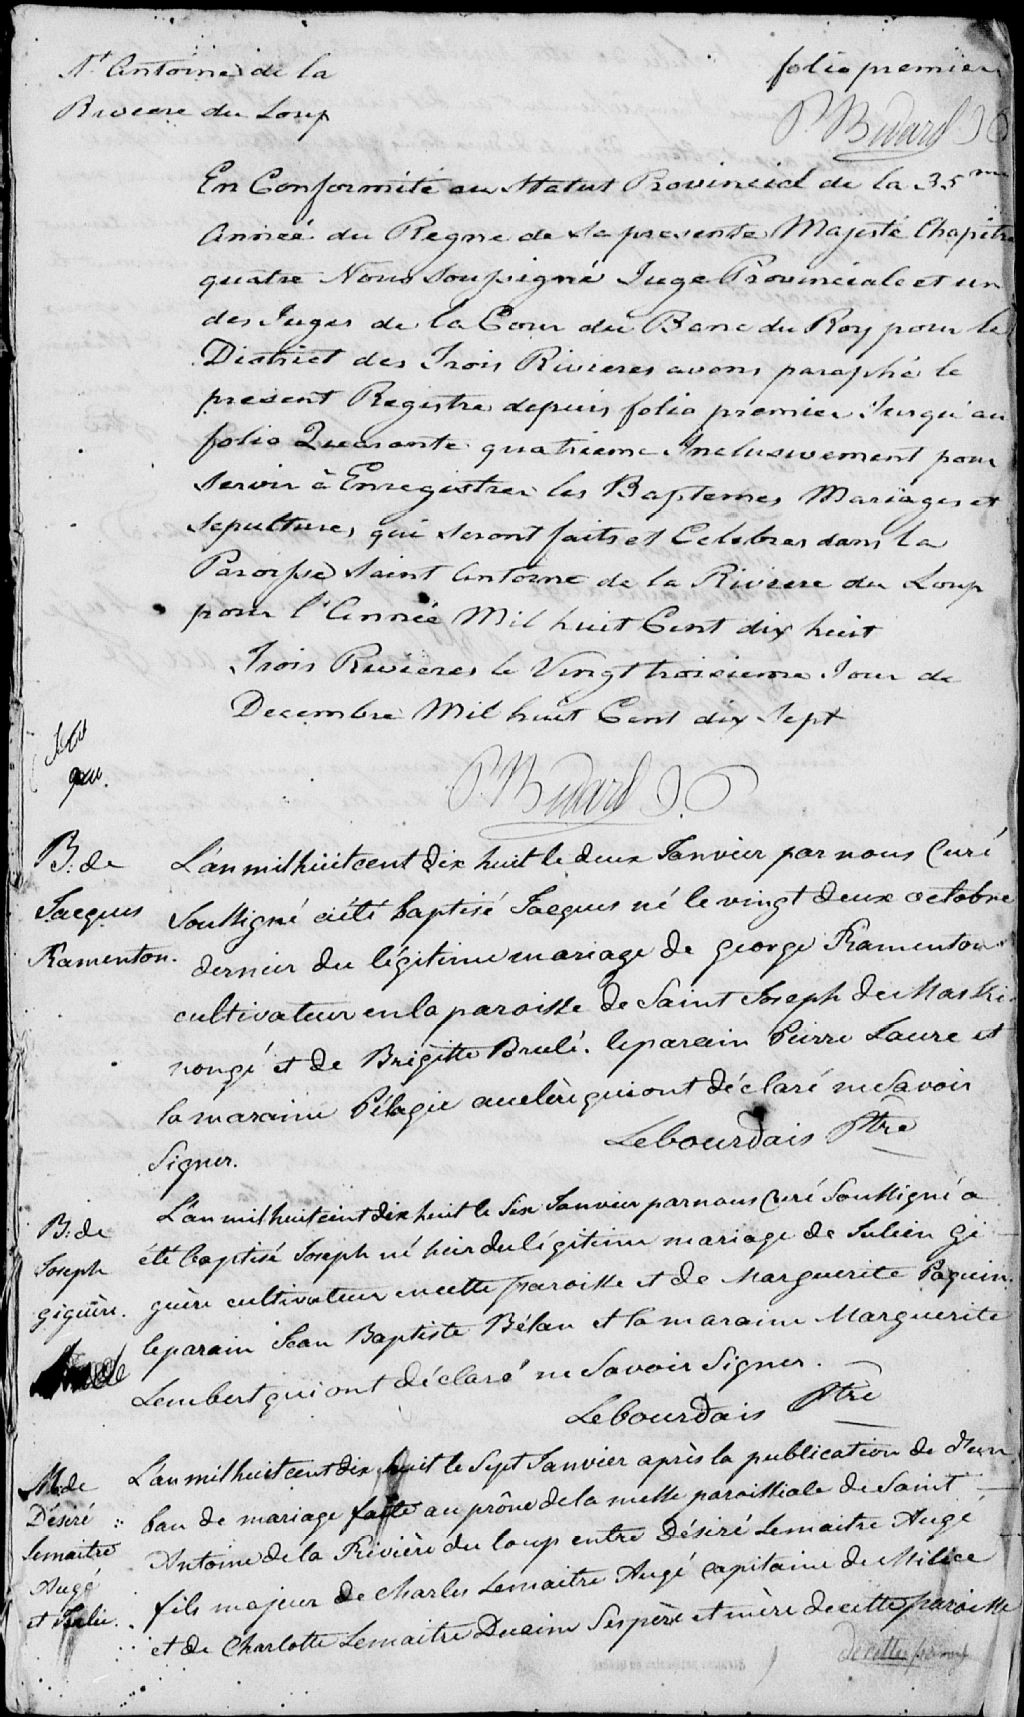 St Antoine de la
Riviere du Loup
folio premier
P. Bedard J P
En Conformité au Statut Provincial de la 35me
Année du Regne de Sa presente Majesté Chapitre
quatre Nous Soussigné Juge Provinciale et un
des Juges de la Cour du Banc du Roy pour le
District des Trois Rivieres avons paraphé le
present Registre depuis folio premier Jusqu'au
folio Quarante quatrieme Inclusivement pour
Servir à Enregistrer les Baptemes Mariages et
Sepultures qui seront faits et Celebres dans la
Paroisse Saint Antoine de la Riviere du Loup
pour l'Année Mil huit Cent dix huit
Trois Rivieres le Vingt troisieme Jour de
Decembre Mil huit Cent dix Sept
P. Bedard J. P
B. de
Jacques
Ramenton.
L'an mil huit cent dix huit le deux Janvier par nous Curé
Soussigné a été baptisé Jacques né le vingt deux octobre
dernier du légitime mariage de george Ramenton
cultivateur en la paroisse de Saint Joseph de Maski
nongé et de Brigitte Brulé. le parain Pierre Laure et
la maraine Pélagie qui ont déclaré ne Savoir
Signer.
Lebourdais Ptre
B. de
Joseph
giguère.
L'an mil huit cent dix huit le Six Janvier par nous Curé Soussigné a
été baptisé Joseph né hier du légitime mariage de Julien Gi
guère cultivateur en cette paroisse et de Marguerite Paquin.
le parain Jean Baptiste Bélan et la maraine Marguerite
Lembert qui ont déclaré ne Savoir Signer.
Lebourdais Ptre
M. de
Désiré
Lemaitre
Augé
et Julie.
L'an mil huit cent dix huit le Sept Janvier après la publication de d'un
ban de mariage faite au prône de la messe paroissiale de Saint
Antoine de la Rivière du loup entre Désiré Lemaitre Augé
fils majeur de Charles Lemaitre Augé Capitaine de Milice
et de Charlotte Lemaitre Duaime Ses père et mère de cette paroisse
de cette parois